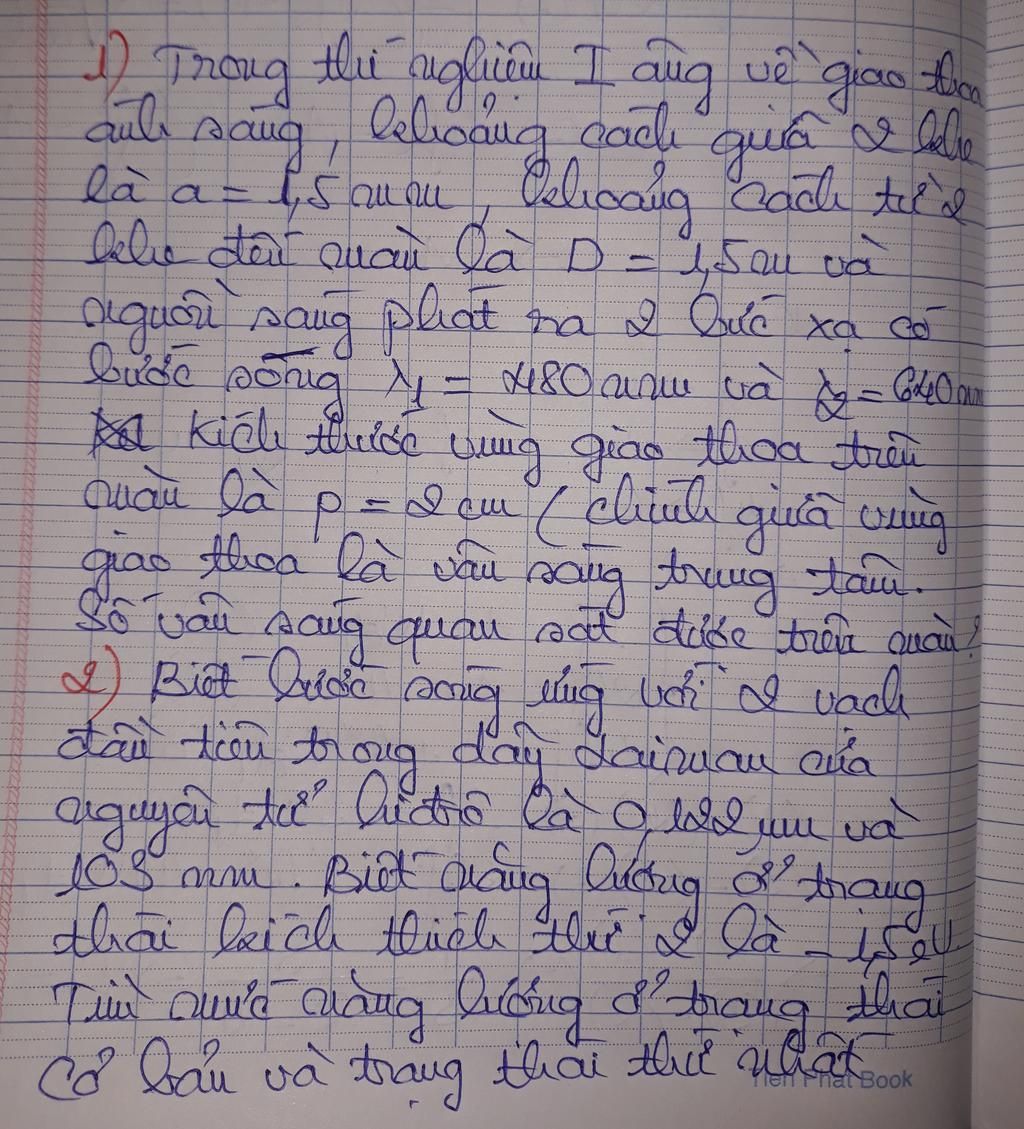 1) Trong thí nghiệm I âng về giao thoa
ánh sáng, khoảng cách giữa 2 khe
là a = 1,5 mm, khoảng cách từ 2
khe đến màn là D = 1,5m và
nguồn sáng phát ra 2 bức xạ có
bước sóng λ1 = 480nm và λ2 = 640nm
kích thước vùng giao thoa trên
màn là p = 2 cm (chính giữa vùng
giao thoa là vân sáng trung tâm.
Số vân sáng quan sát được trên màn?
2) Biết bước sóng ứng với 2 vạch
đầu tiên trong dãy laiman của
nguyên tử hiđrô là 0,122 μm và
103 nm. Biết năng lượng ở trạng
thái kích thích thứ 2 là - 1,5eV.
Tìm mức năng lượng ở trạng thái
cơ bản và trạng thái thứ nhất
Tiến Phát Book